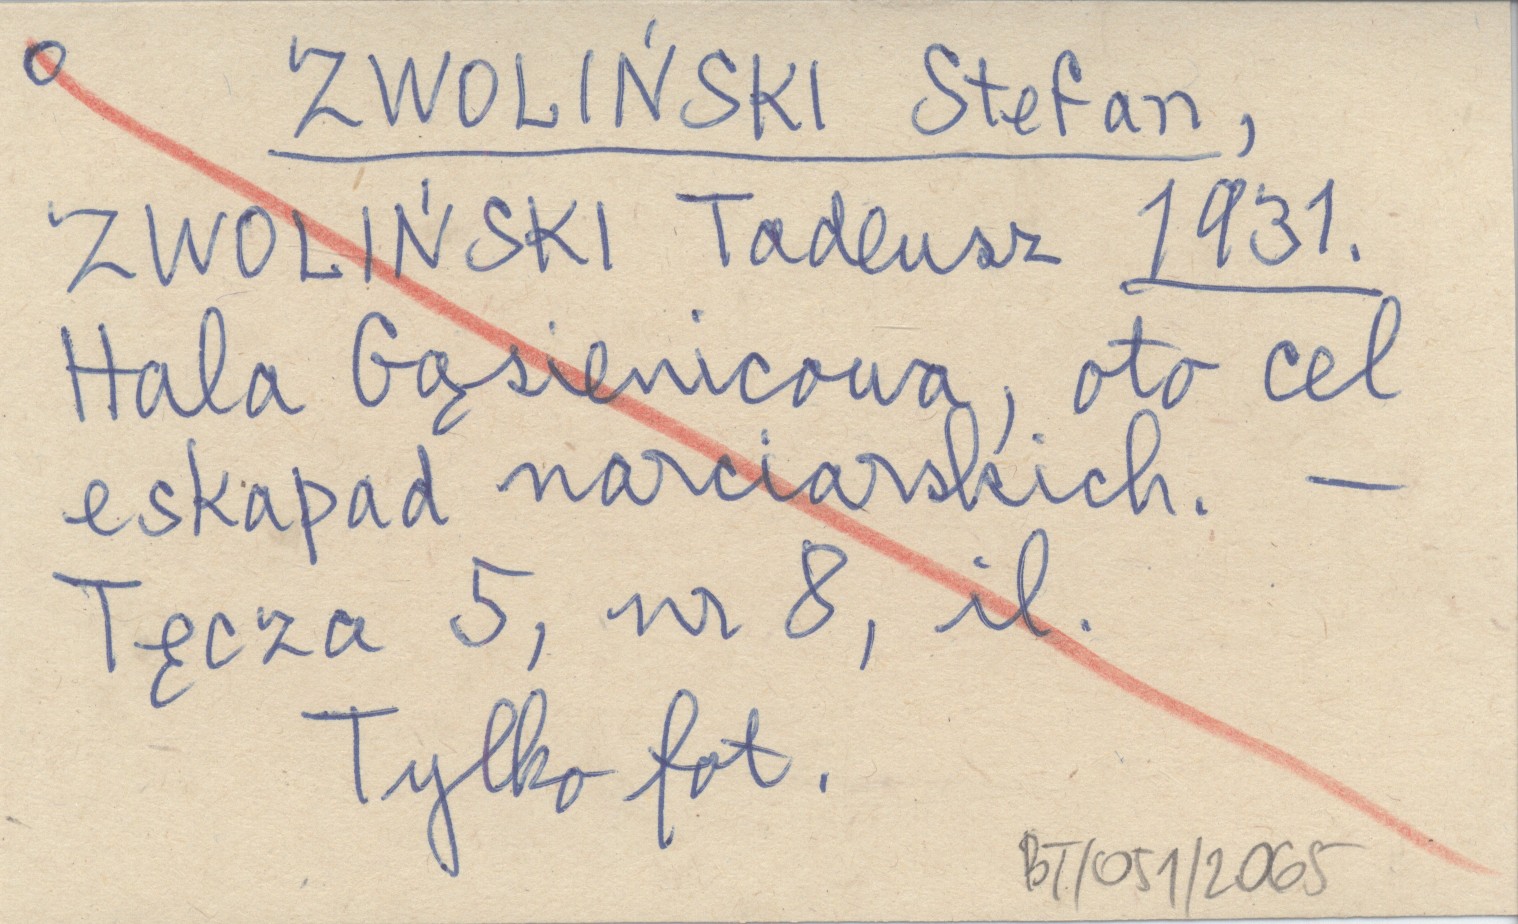 ZWOLIŃSKI Stefan,
ZWOLIŃSKI Tadeusz 1931.
Hala Gąsienicowa, oto cel
eskapad narciarskich. —
Tęcza 5, nr 8, il.
Tylko fot.
BT/051/2065